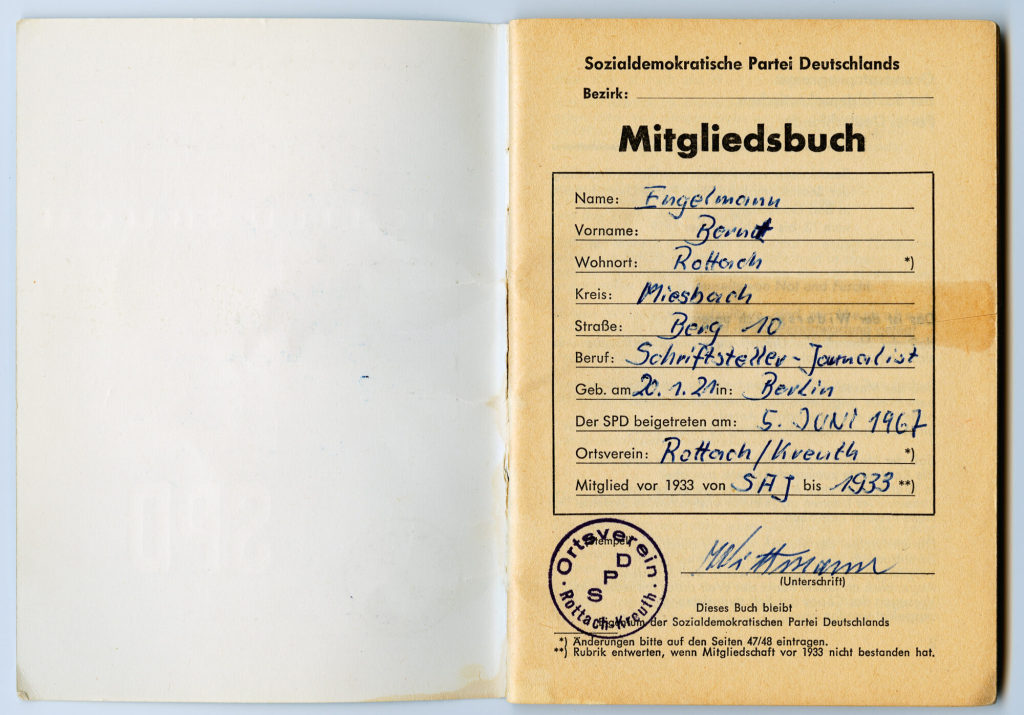 Sozialdemokratische Partei Deutschlands
Bezirk:
Mitgliedsbuch
Name: Engelmann
Vorname: Bernt
Wohnort: Rottach *)
Kreis: Miesbach
Straße: Berg 10
Beruf: Schriftsteller-Journalist
Geb. am 20.1.21 in: Berlin
Der SPD beigetreten am: 5. JUNI 1967
Ortsverein: Rottach/Kreuth *)
Mitglied vor 1933 von SAJ bis 1933 **)
Stempel
Ortsverein
SPD
Rottach-Kreuth
Wittmann
(Unterschrift)
Dieses Buch bleibt
Eigentum der Sozialdemokratischen Partei Deutschlands
*) Änderungen bitte auf den Seiten 47/48 eintragen.
**) Rubrik entwerten, wenn Mitgliedschaft vor 1933 nicht bestanden hat.